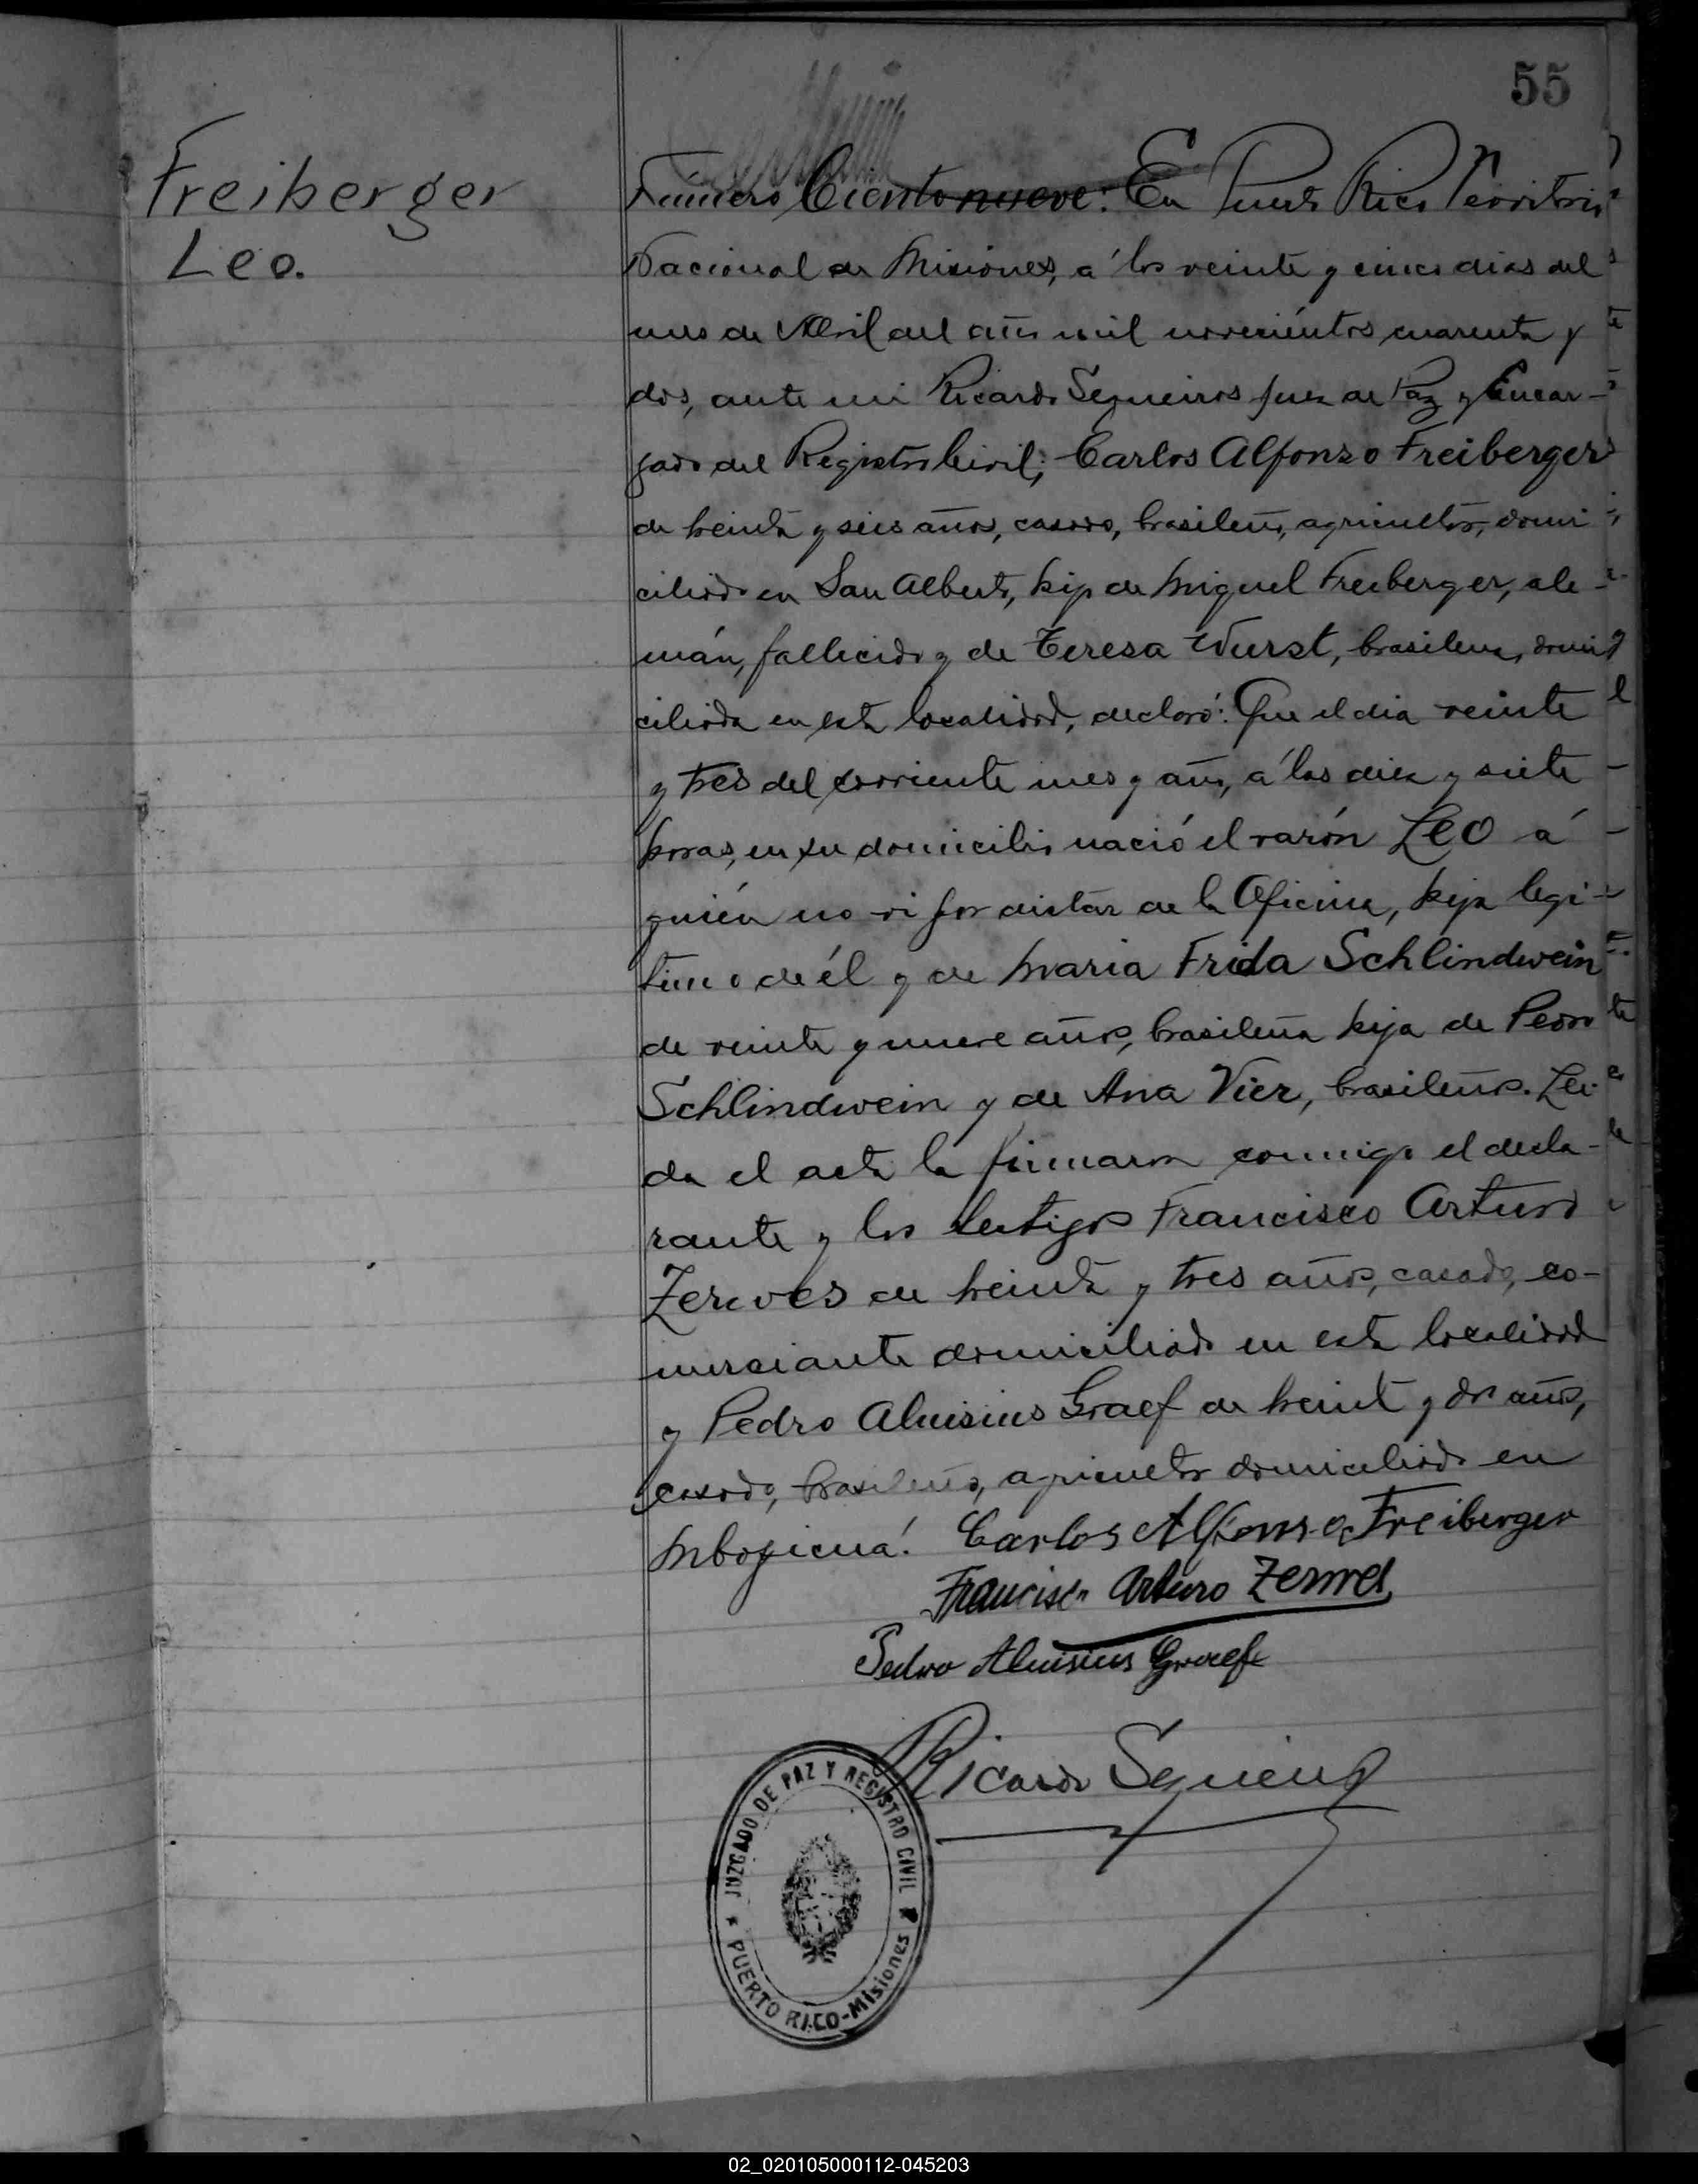 55
Freiberger
Leo.
Número Ciento nueve: En Puerto Rico Territorio
Nacional de Misiones, á los veinte y cinco dias del
mes de Abril del año mil novecientos cuarenta y
dos, ante mi Ricardo Sequeiros Juez de Paz y Encar-
gado del Registro Civil; Carlos Alfonzo Freiberger
de treinta y seis años, casado, brasileño, agricultor, domi
ciliado en San Alberto, hijo de Miguel Freiberger, ale-
mán, fallecido y de Teresa Wurst, brasilena, domi
ciliada en esta localidad, declaró: Que el dia veinte
y tres del corriente mes y año, á las diez y siete
horas, en su domicilio nació el varón Leo á
quién no vi por distar de la Oficina, hijo legi-
timo de él y de Maria Frida Schlindwein
de veinte y nueve años, brasileña hija de Pedro
Schlindwein y de Ana Vier, brasileños. Lei-
da el acta la firmaron conmigo el decla-
rante y los testigos Francisco Arturo
Zerwes de treinta y tres años, casado, co-
merciante domiciliado en esta localidad
y Pedro Aluisius Graef de treinta y dos años,
casado, brasileño, agricultor domiciliado en
Mbopicuá. Carlos Alfonso Freiberger
Francisco Arturo Zerwes
Pedro Aluisius Graef
Ricardo Sequeiros
JUZGADO DE PAZ Y REGISTRO CIVIL
PUERTO RICO-Misiones
02_020105000112-045203